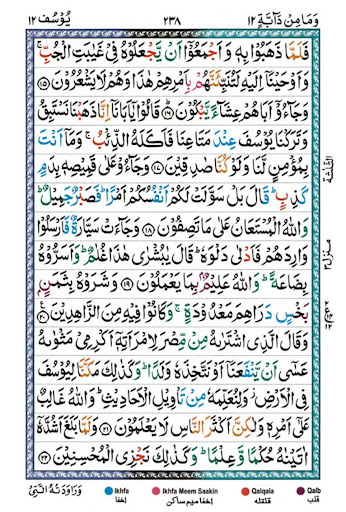 وَمَا مِنْ دَآبَّةٍ ١٢ ٢٣٨ يُوْسُف ١٢
فَلَمَّا ذَهَبُوْا بِهٖ وَ اَجْمَعُوْۤا اَنْ يَّجْعَلُوْهُ فِيْ غَيٰبَتِ الْجُبِّ ۚ
وَ اَوْحَيْنَاۤ اِلَيْهِ لَتُنَبِّئَنَّهُمْ بِاَمْرِهِمْ هٰذَا وَ هُمْ لَا يَشْعُرُوْنَ ﴿١٥﴾
وَ جَآءُوْۤ اَبَاهُمْ عِشَآءً يَّبْكُوْنَ ﴿١٦﴾ قَالُوْا يٰۤاَبَانَاۤ اِنَّا ذَهَبْنَا نَسْتَبِقُ
وَ تَرَكْنَا يُوْسُفَ عِنْدَ مَتَاعِنَا فَاَكَلَهُ الذِّئْبُ ۚ وَ مَاۤ اَنْتَ
بِمُؤْمِنٍ لَّنَا وَ لَوْ كُنَّا صٰدِقِيْنَ ﴿١٧﴾ وَ جَآءُوْ عَلٰى قَمِيْصِهٖ بِدَمٍ
كَذِبٍ ؕ قَالَ بَلْ سَوَّلَتْ لَكُمْ اَنْفُسُكُمْ اَمْرًا ؕ فَصَبْرٌ جَمِيْلٌ ؕ
وَ اللّٰهُ الْمُسْتَعَانُ عَلٰى مَا تَصِفُوْنَ ﴿١٨﴾ وَ جَآءَتْ سَيَّارَةٌ فَاَرْسَلُوْا
وَارِدَهُمْ فَاَدْلٰى دَلْوَهٗ ؕ قَالَ يٰبُشْرٰى هٰذَا غُلٰمٌ ؕ وَ اَسَرُّوْهُ
بِضَاعَةً ؕ وَ اللّٰهُ عَلِيْمٌۢ بِمَا يَعْمَلُوْنَ ﴿١٩﴾ وَ شَرَوْهُ بِثَمَنٍۭ
بَخْسٍ دَرَاهِمَ مَعْدُوْدَةٍ ۚ وَ كَانُوْا فِيْهِ مِنَ الزَّاهِدِيْنَ ﴿٢٠﴾
وَ قَالَ الَّذِي اشْتَرٰىهُ مِنْ مِّصْرَ لِامْرَاَتِهٖۤ اَكْرِمِيْ مَثْوٰىهُ
عَسٰۤى اَنْ يَّنْفَعَنَاۤ اَوْ نَتَّخِذَهٗ وَلَدًا ؕ وَ كَذٰلِكَ مَكَّنَّا لِيُوْسُفَ
فِي الْاَرْضِ ؗ وَ لِنُعَلِّمَهٗ مِنْ تَاْوِيْلِ الْاَحَادِيْثِ ؕ وَ اللّٰهُ غَالِبٌ
عَلٰۤى اَمْرِهٖ وَ لٰكِنَّ اَكْثَرَ النَّاسِ لَا يَعْلَمُوْنَ ﴿٢١﴾ وَ لَمَّا بَلَغَ اَشُدَّهٗۤ
اٰتَيْنٰهُ حُكْمًا وَّ عِلْمًا ؕ وَ كَذٰلِكَ نَجْزِي الْمُحْسِنِيْنَ ﴿٢٢﴾
Ikhfa Ikhfa Meem Saakin Qalqala Qalb
وَرَاوَدَتْهُ الَّتِيْ اخفا اخفا میم ساکن قلقلہ قلب